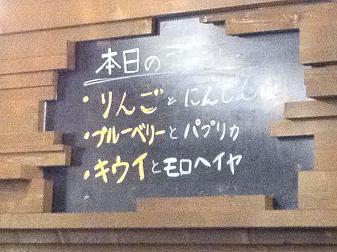 本日の
・りんごとにんじん
・ブルーベリーとパプリカ
・キウイとモロヘイヤ